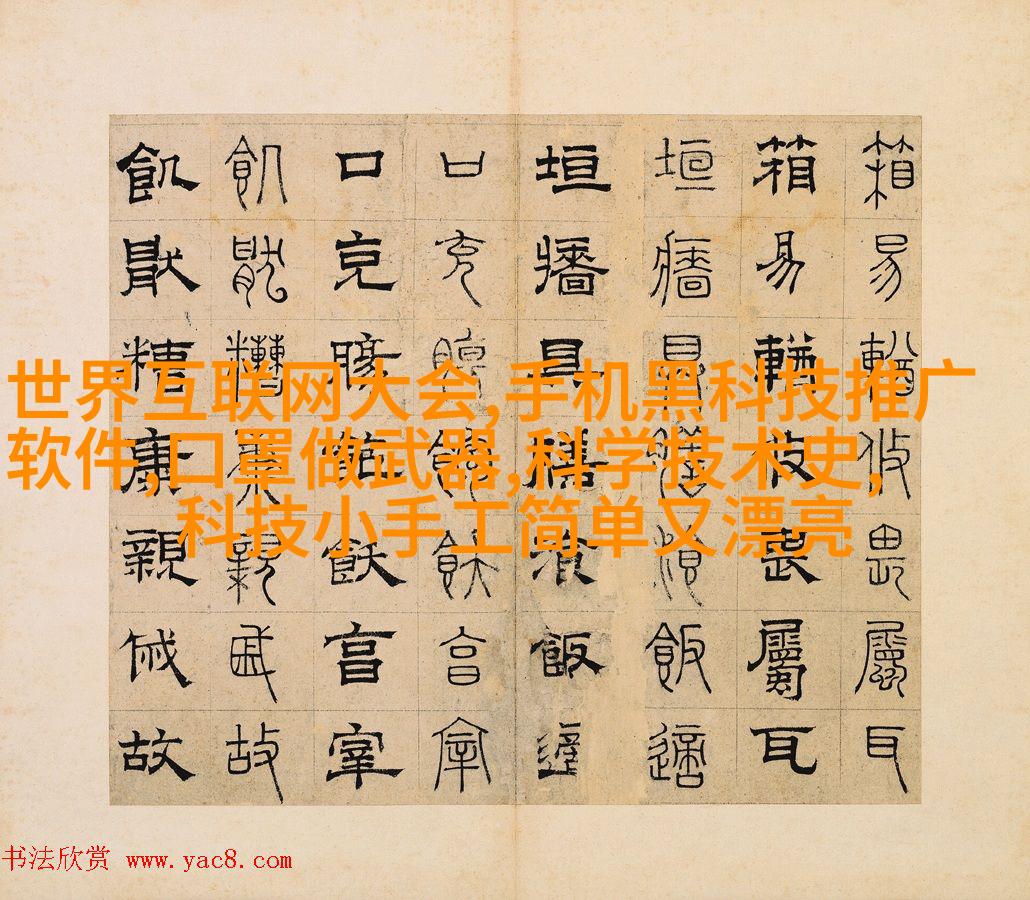 箱易輶攸畏屬耳
箱易輶攸畏屬耳
垣牆具膳湌飯適
垣牆具膳飯適
口充腸飽飫亯宰
口充腸飽飫亯宰
飢猒糟糠親戚故
飢猒糟康親戚故
世界互联网大会,手机黑科技推广
软件,口罩做武器,科学技术史,
科技小手工简单又漂亮
书法欣赏 www.yac8.com